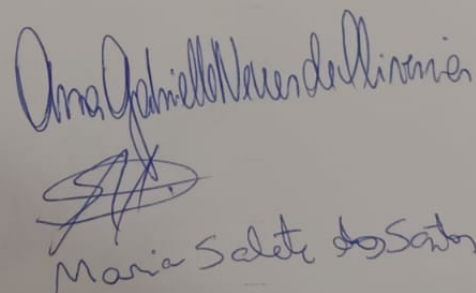 Ana Gabrielle Neves de Oliveira
Maria Salete dos Santos